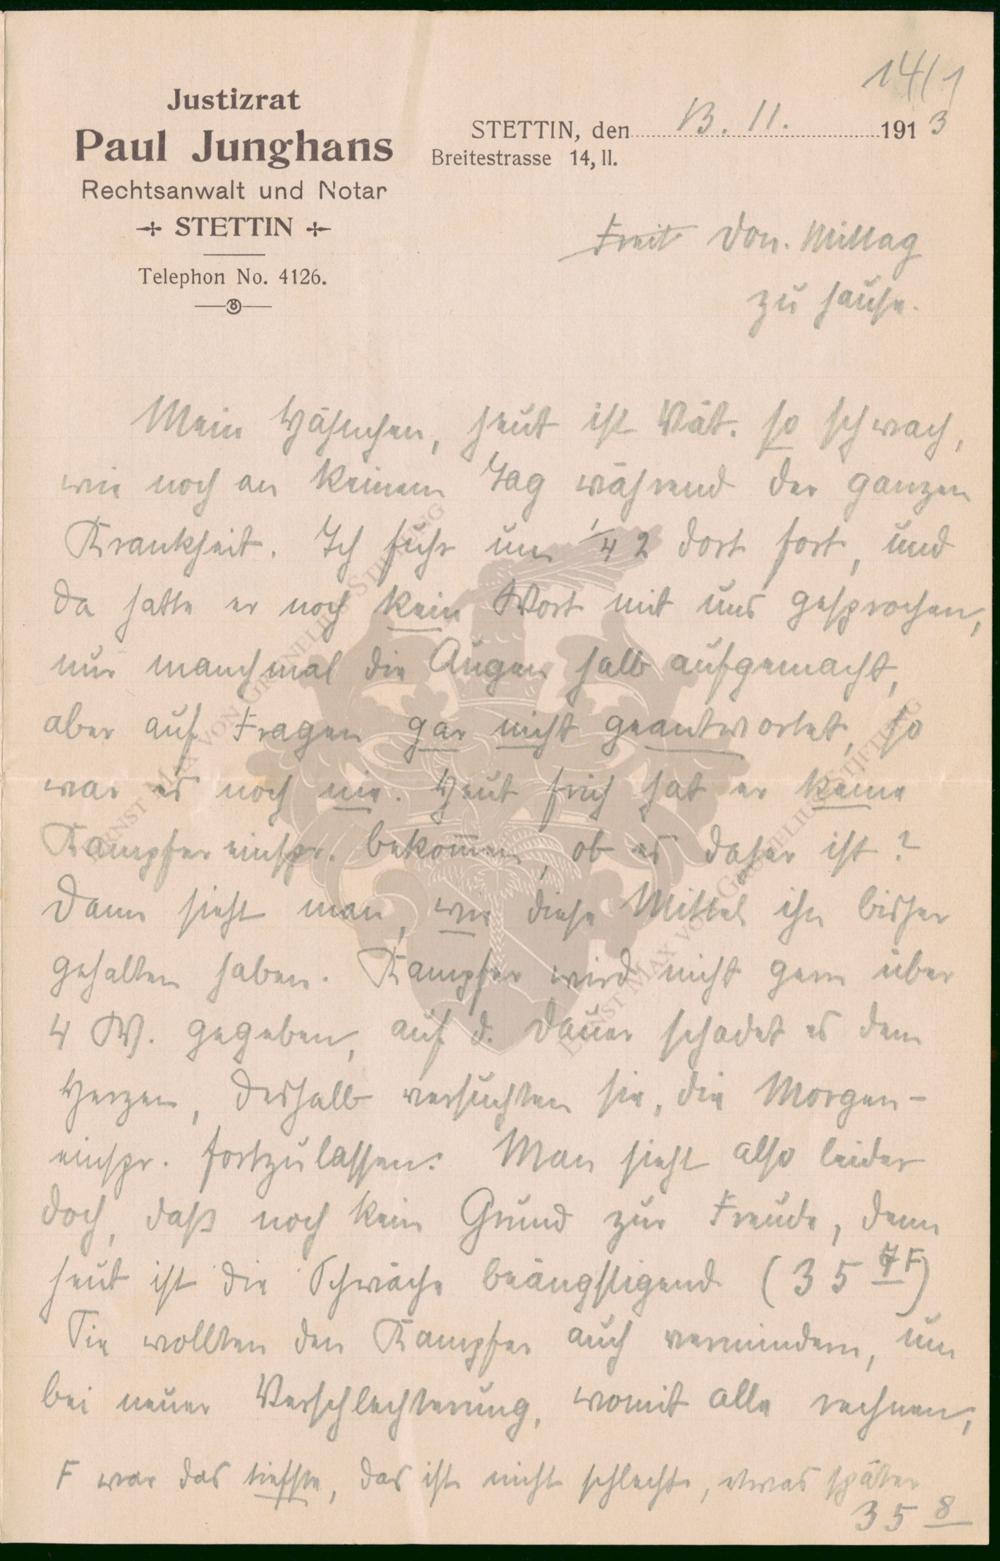 14/1
Justizrat
Paul Junghans
Rechtsanwalt und Notar
STETTIN
Telephon No. 4126.
STETTIN, den 13. 11. 1913
Breitestrasse 14, II.
Don. Mittag
zu Hause.
Mein Hähnchen, heut ist Vat. so schwach,
wie noch an keinem Tag während der ganzen
Krankheit. Ich fuhr um 1/4 2 dort fort, und
da hatte er noch kein Wort mit uns gesprochen,
nur manchmal die Augen halb aufgemacht,
aber auf Fragen gar nicht geantwortet, so
war es noch nie. Heut früh hat er keine
Kampfereinspr. bekommen, ob es daher ist?
Dann sieht man, wie diese Mittel ihn bisher
gehalten haben. Kampfer wird nicht gern über
4 W. gegeben, auf d. Dauer schadet es dem
Herzen, deshalb versuchten sie, die Morgen-
einspr. fortzulassen. Man sieht also leider
doch, daß noch kein Grund zur Freude, denn
heut ist die Schwäche beängstigend (35 7 F)
Sie wollten den Kampfer auch vermindern, um
bei neuer Verschlechterung, womit alle rechnen,
F war das tiefste, das ist nicht schlecht, etwas später
35 8
ERNST MAX VON GRUNELIUS-STIFTUNG
ERNST MAX VON GRUNELIUS-STIFTUNG